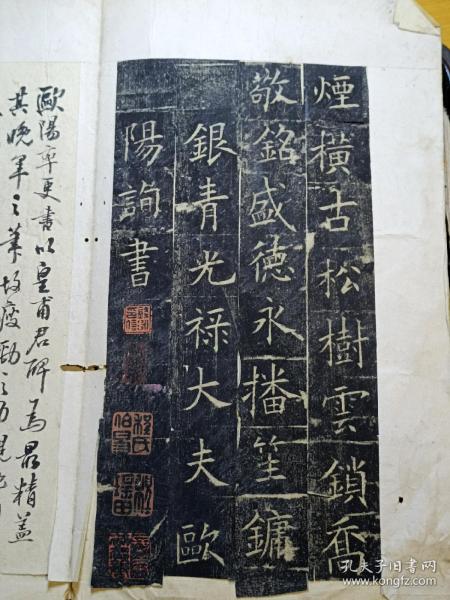 煙橫古松樹雲鎖喬
敬銘盛德永播笙鏞
銀青光祿大夫歐
陽詢書
歐陽率更書以皇甫君碑為最精蓋
其晚年之筆故瘦勁之
孔夫子旧书网